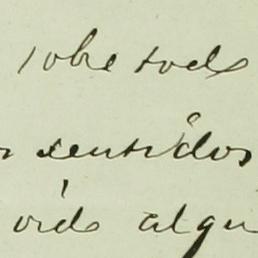 sobre todo
sentidos
oido algu